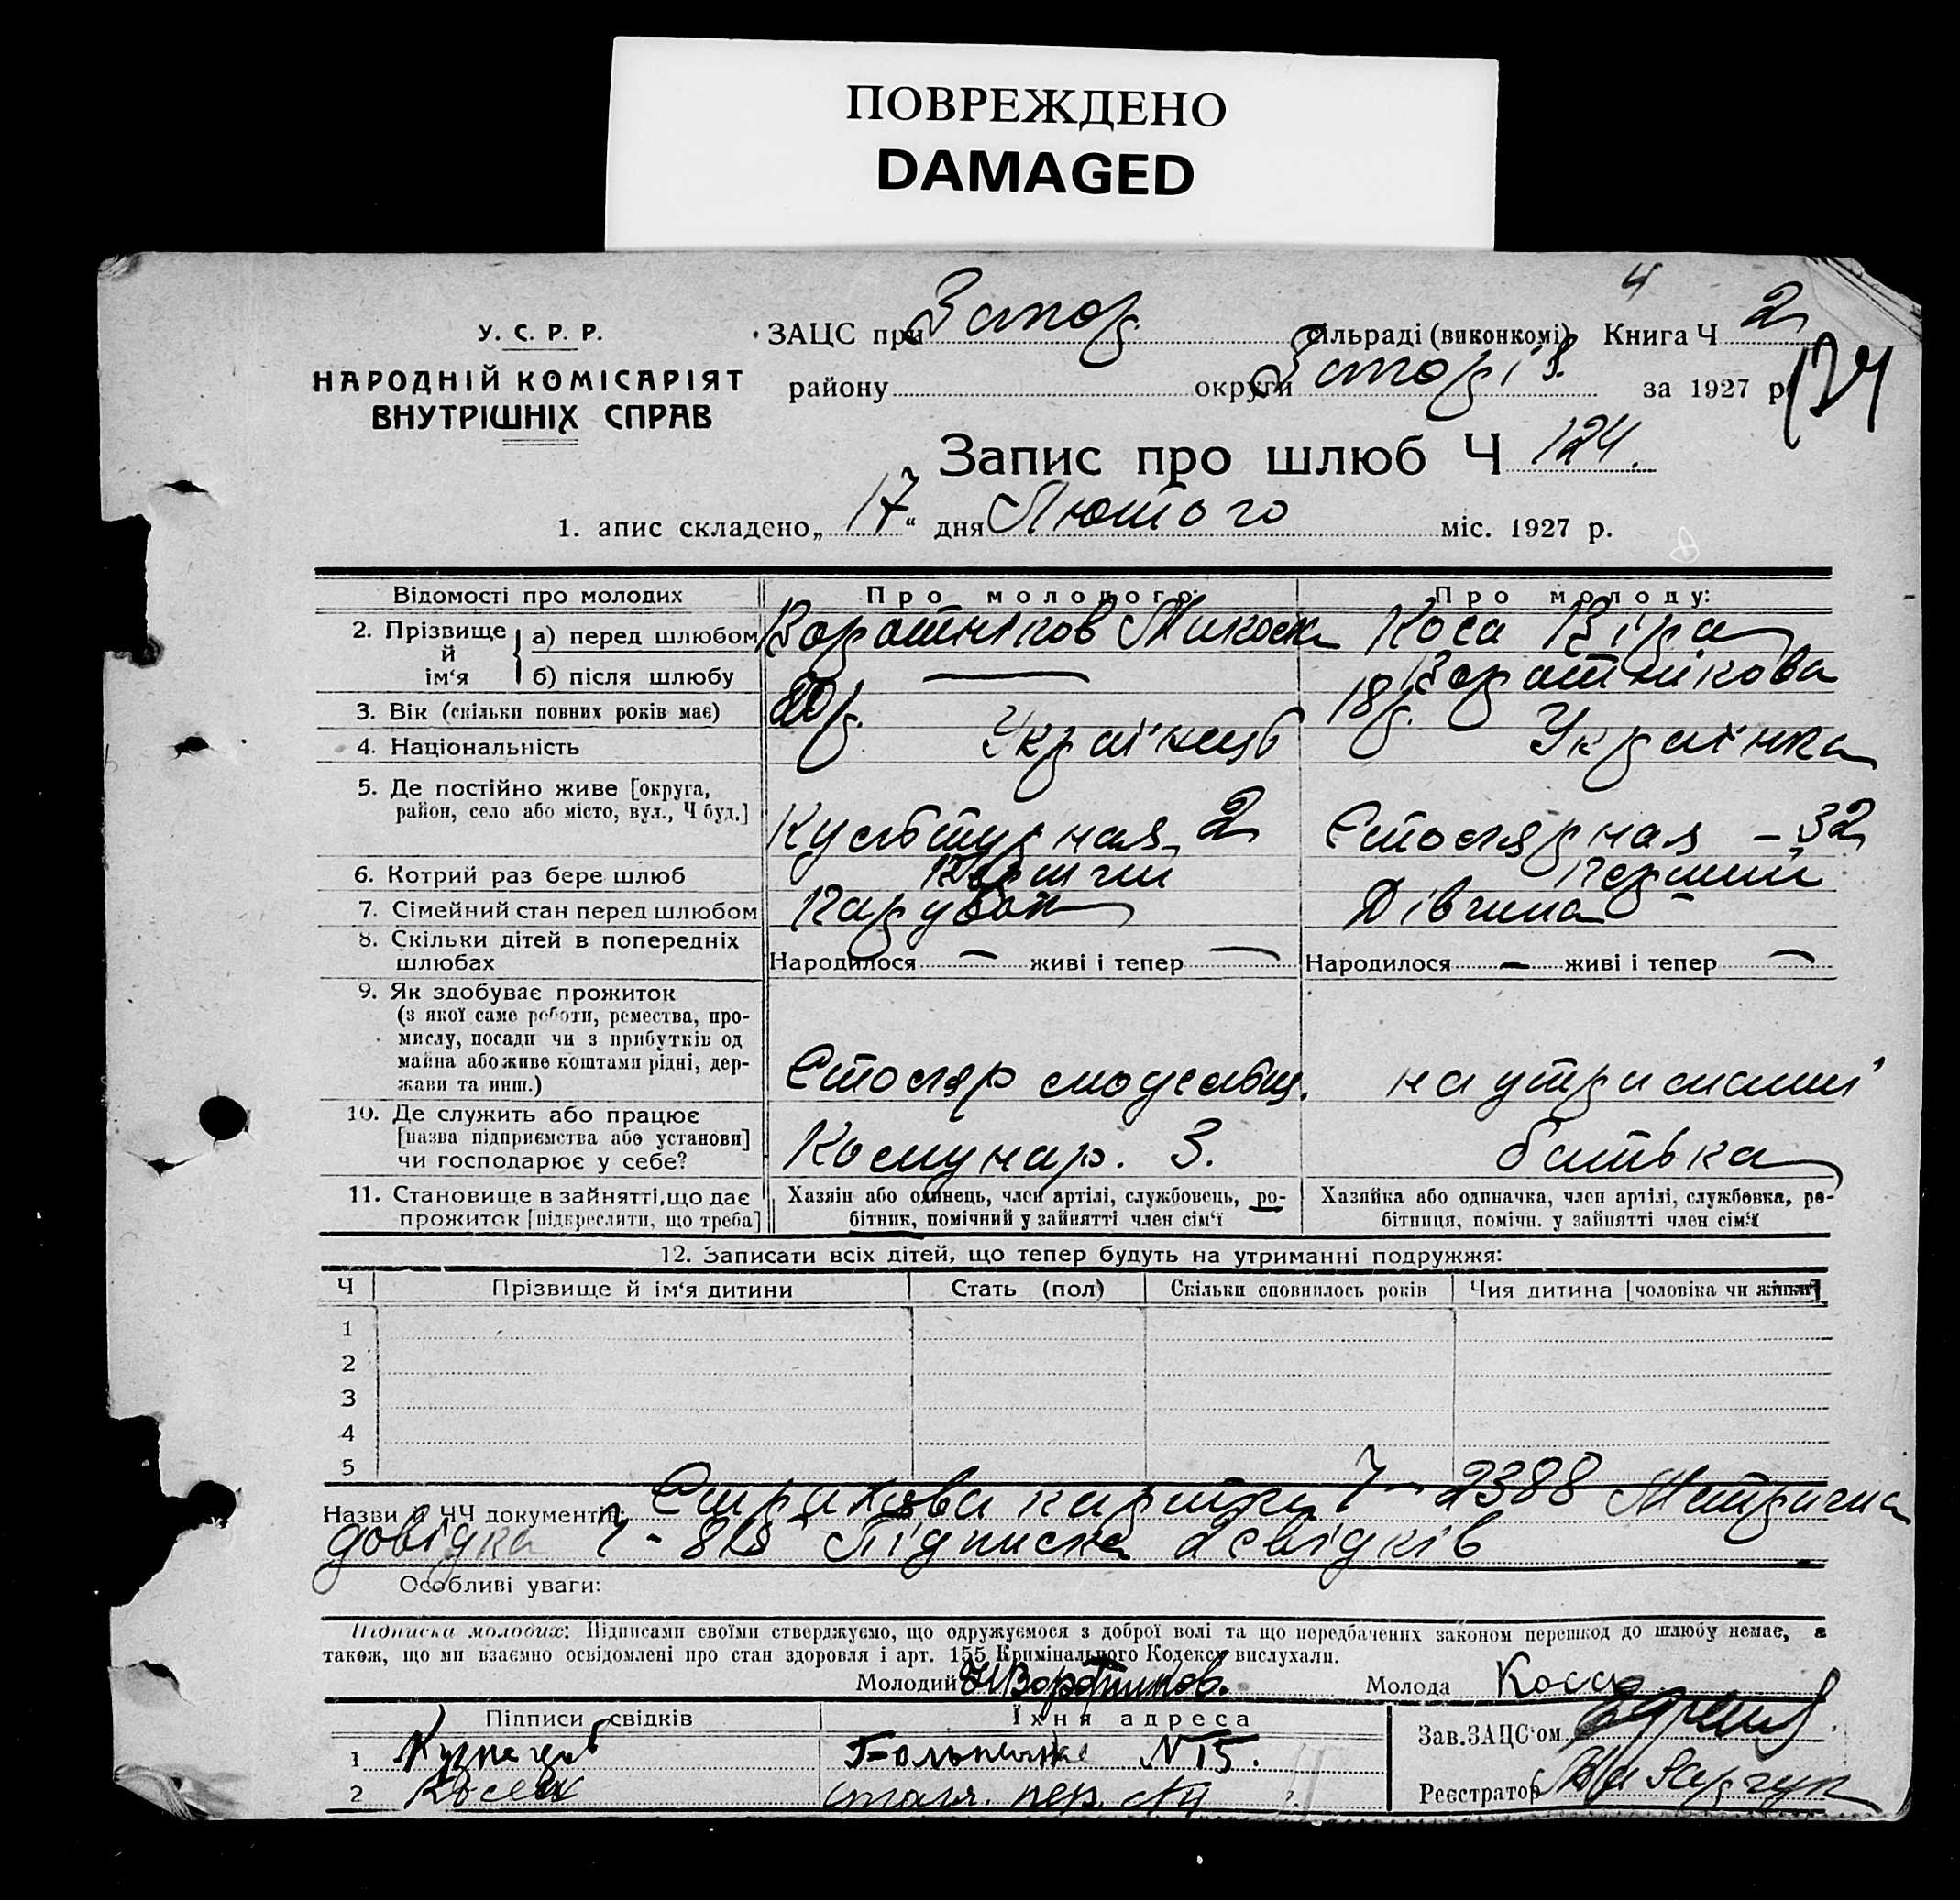 ПОВРЕЖДЕНО
DAMAGED
4
У. С. Р. Р.
НАРОДНІЙ КОМІСАРІЯТ
ВНУТРІШНІХ СПРАВ
ЗАЦС при Запор. сільраді (виконкомі) Книга Ч 2
району округи Запоріз. за 1927 р.
124
Запис про шлюб Ч 124.
1. апис складено „17“ дня Лютого міс. 1927 р.
Відомості про молодих Про молодого: Про молоду:
2. Прізвище й ім‘я
а) перед шлюбом Воротніков Микола Коса Віра
б) після шлюбу — Воротнікова
3. Вік (скільки повних років має) 20 р. 18 р.
4. Національність Українець Українка
5. Де постійно живе [округа,
район, село або місто, вул., Ч буд.] Культурная 2 Столярная - 32
6. Котрий раз бере шлюб Перший Перший
7. Сімейний стан перед шлюбом Парубок Дівчина
8. Скільки дітей в попередніх
шлюбах Народилося — живі і тепер — Народилося — живі і тепер —
9. Як здобуває прожиток
(з якої саме роботи, ремества, про-
мислу, посади чи з прибутків од
майна або живе коштами рідні, дер-
жави та инш.) Столяр модельщ. на утриманні
10. Де служить або працює
[назва підприємства або установи]
чи господарює у себе? Комунар. З. батька
11. Становище в зайнятті, що дає Хазяїн або одинець, член артілі, службовець, ро- Хазяйка або одиначка, член артілі, службовка, ро-
прожиток [підкреслити, що треба] бітник, помічний у зайнятті член сім‘ї бітниця, помічн. у зайнятті член сім‘ї
12. Записати всіх дітей, що тепер будуть на утриманні подружжя:
Ч Прізвище й ім‘я дитини Стать (пол) Скільки сповнилось років Чия дитина [чоловіка чи жінки]
1
2
3
4
5
Назви й ЧЧ документів: Страхова картка 7-2388 Метрична
довідка Підписка 2 свідків
Особливі уваги:
Підписка молодих: Підписами своїми стверджуємо, що одружуємося з доброї волі та що передбачених законом перешкод до шлюбу немає, а
також, що ми взаємно освідомлені про стан здоровля і арт. 155 Кримінального Кодексу вислухали.
Молодий Воротников. Молода Косса
Підписи свідків Їхня адреса Зав. ЗАЦС‘ом
1 Кузнецов N 15.
2 пер. Реєстратор